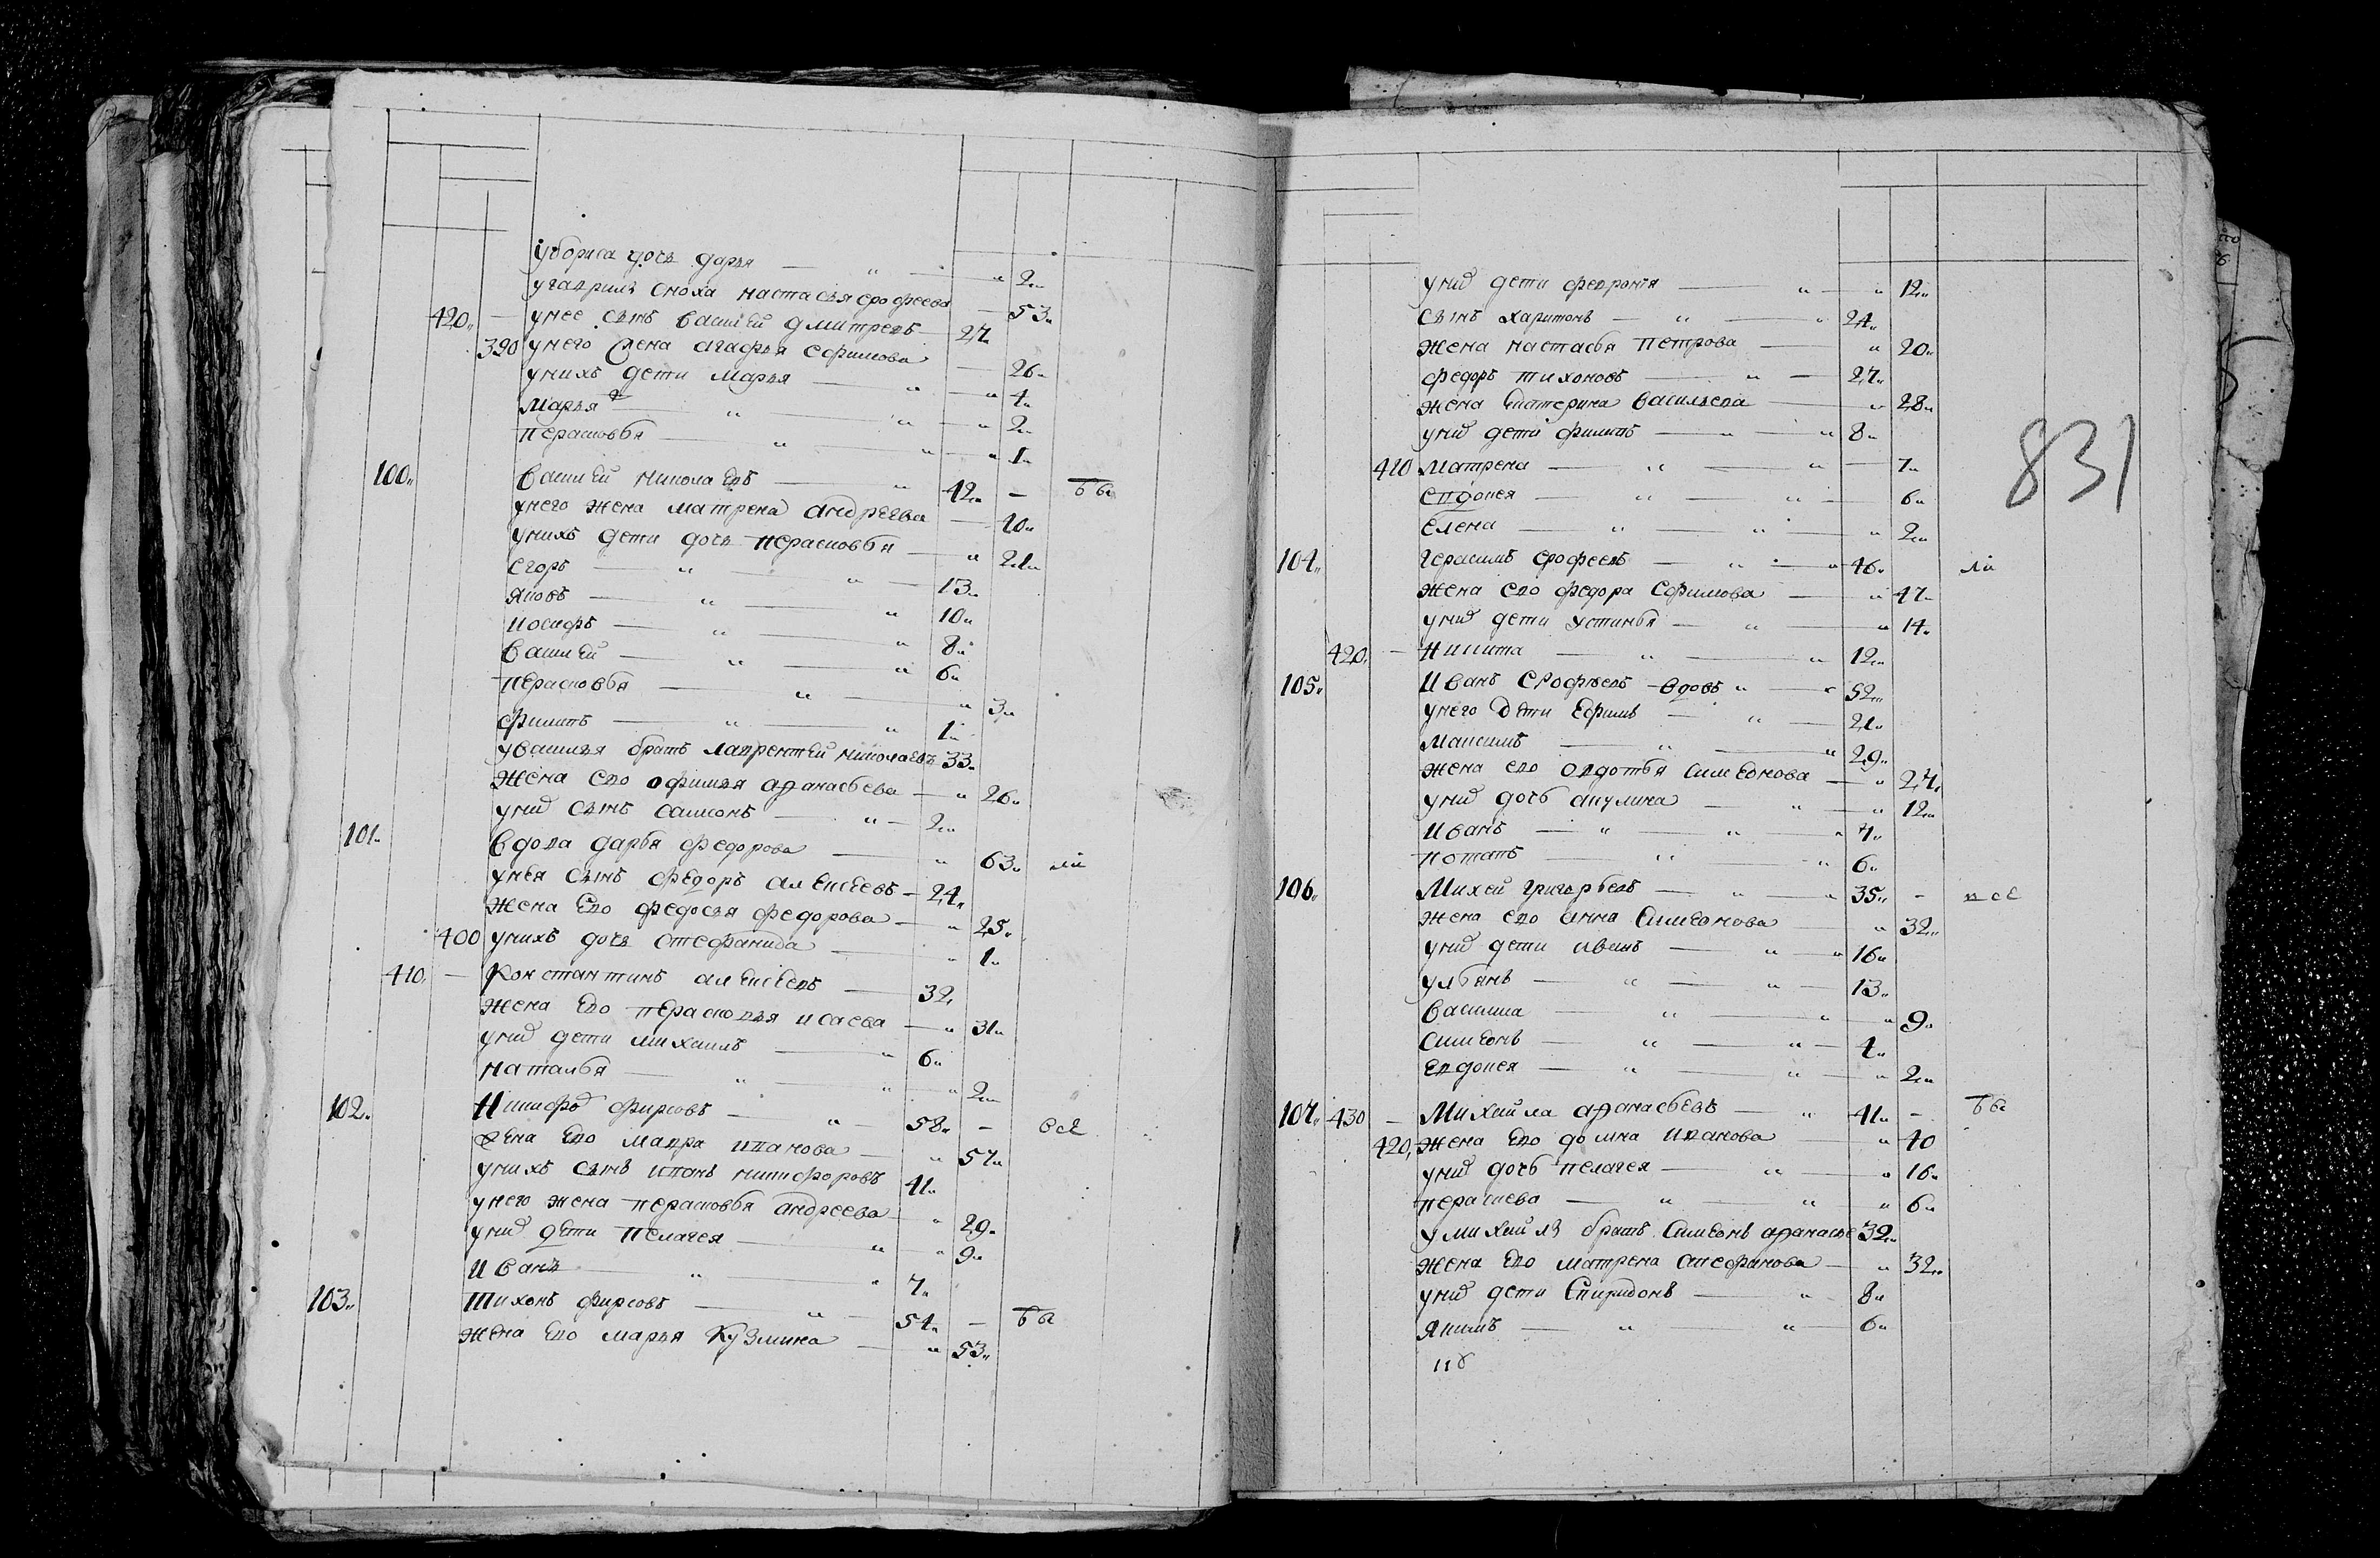 у бориса дочь дарья — " — " 2"
у гаврилы сноха настасья ерофеева — 53"
420" — у нее сынъ василей дмитревъ — 27"
390 у него жена агафья ефимова — 26"
у нихъ дети марья — " — " 4"
марья 2 — " — " — " 2"
парасковья — " — " — " 1"
100" василей николаевъ — " 42" —
у него жена матрена андреева — 40"
у нихъ дети дочь парасковья — " 21"
егоръ — " — " — 13"
яковъ — " — " 10"
иосифъ — " — " 8"
василей — " — " 6"
парасковья — " — " 3"
филипъ — " — " 1"
у василья братъ лаврентей николаевъ 33"
жена ево офимья афанасьева — " 26"
у них сынъ самсонъ — " — 2"
101" вдова дарья федорова — " 63"
у нея сынъ федоръ алексеевъ — 24"
жена ево федосья федорова — " 25"
400 у нихъ дочь стефанида — " 1"
410" — константинъ алексеевъ — 32"
жена ево парасковья исаева — " 31"
у них дети михаилъ — " 6"
наталья — " — " — " 2"
102" никифор фирсовъ — " — 58" —
жена ево мавра иванова — " 57"
у нихъ сынъ иванъ никифоровъ 41"
у него жена парасковья андреева — " 29"
у них дети пелагея — " " 9"
иванъ — " — " 7"
103" тихонъ фирсовъ — " — 54" —
жена ево марья кузмина — " 53"
у них дети феврония — " — " 12"
сынъ харитонъ — " — " 24"
жена настасья петрова — " 20"
федоръ тихоновъ — " — 27"
жена катерина васильева — " 28"
у них дети филипъ — " — " 8"
831
410 матрена — " — " — 7"
евдокея — " — " — 6"
елена — " — " — " 2"
104" герасимъ ерофеевъ — " — " 46"
жена ево федора ефимова — " 47"
у них дети устинья — " — " 14"
420" — никита — " — " 12"
105" иванъ ерофѣевъ — вдовъ " — " 52"
у него дѣти ефимъ — " — 21"
максимъ — " — " 29"
жена ево овдотья симеонова — " 27"
у них дочь акулина — " — " 12"
иванъ — " — " — " 7"
потапъ — " — " 6"
106" михей григорьевъ — " — " 35" —
жена ево анна симеонова — " 32"
у них дети иванъ — " — " 16"
ульянъ — " — " — 13"
василиса — " — " — " 9"
симеонъ — " — " — 4"
евдокея — " — " — " 2"
107" 430 — михайла афанасьевъ — " 41" —
420" жена ево домна иванова — " 40
у них дочь пелагея — " — " 16"
парасева — " — " " 6"
у михайлы братъ симеонъ афанасье 32"
жена ево матрена ансифирова — " 32"
у них дети спиридонъ — " 8"
якимъ — " — " — 6"